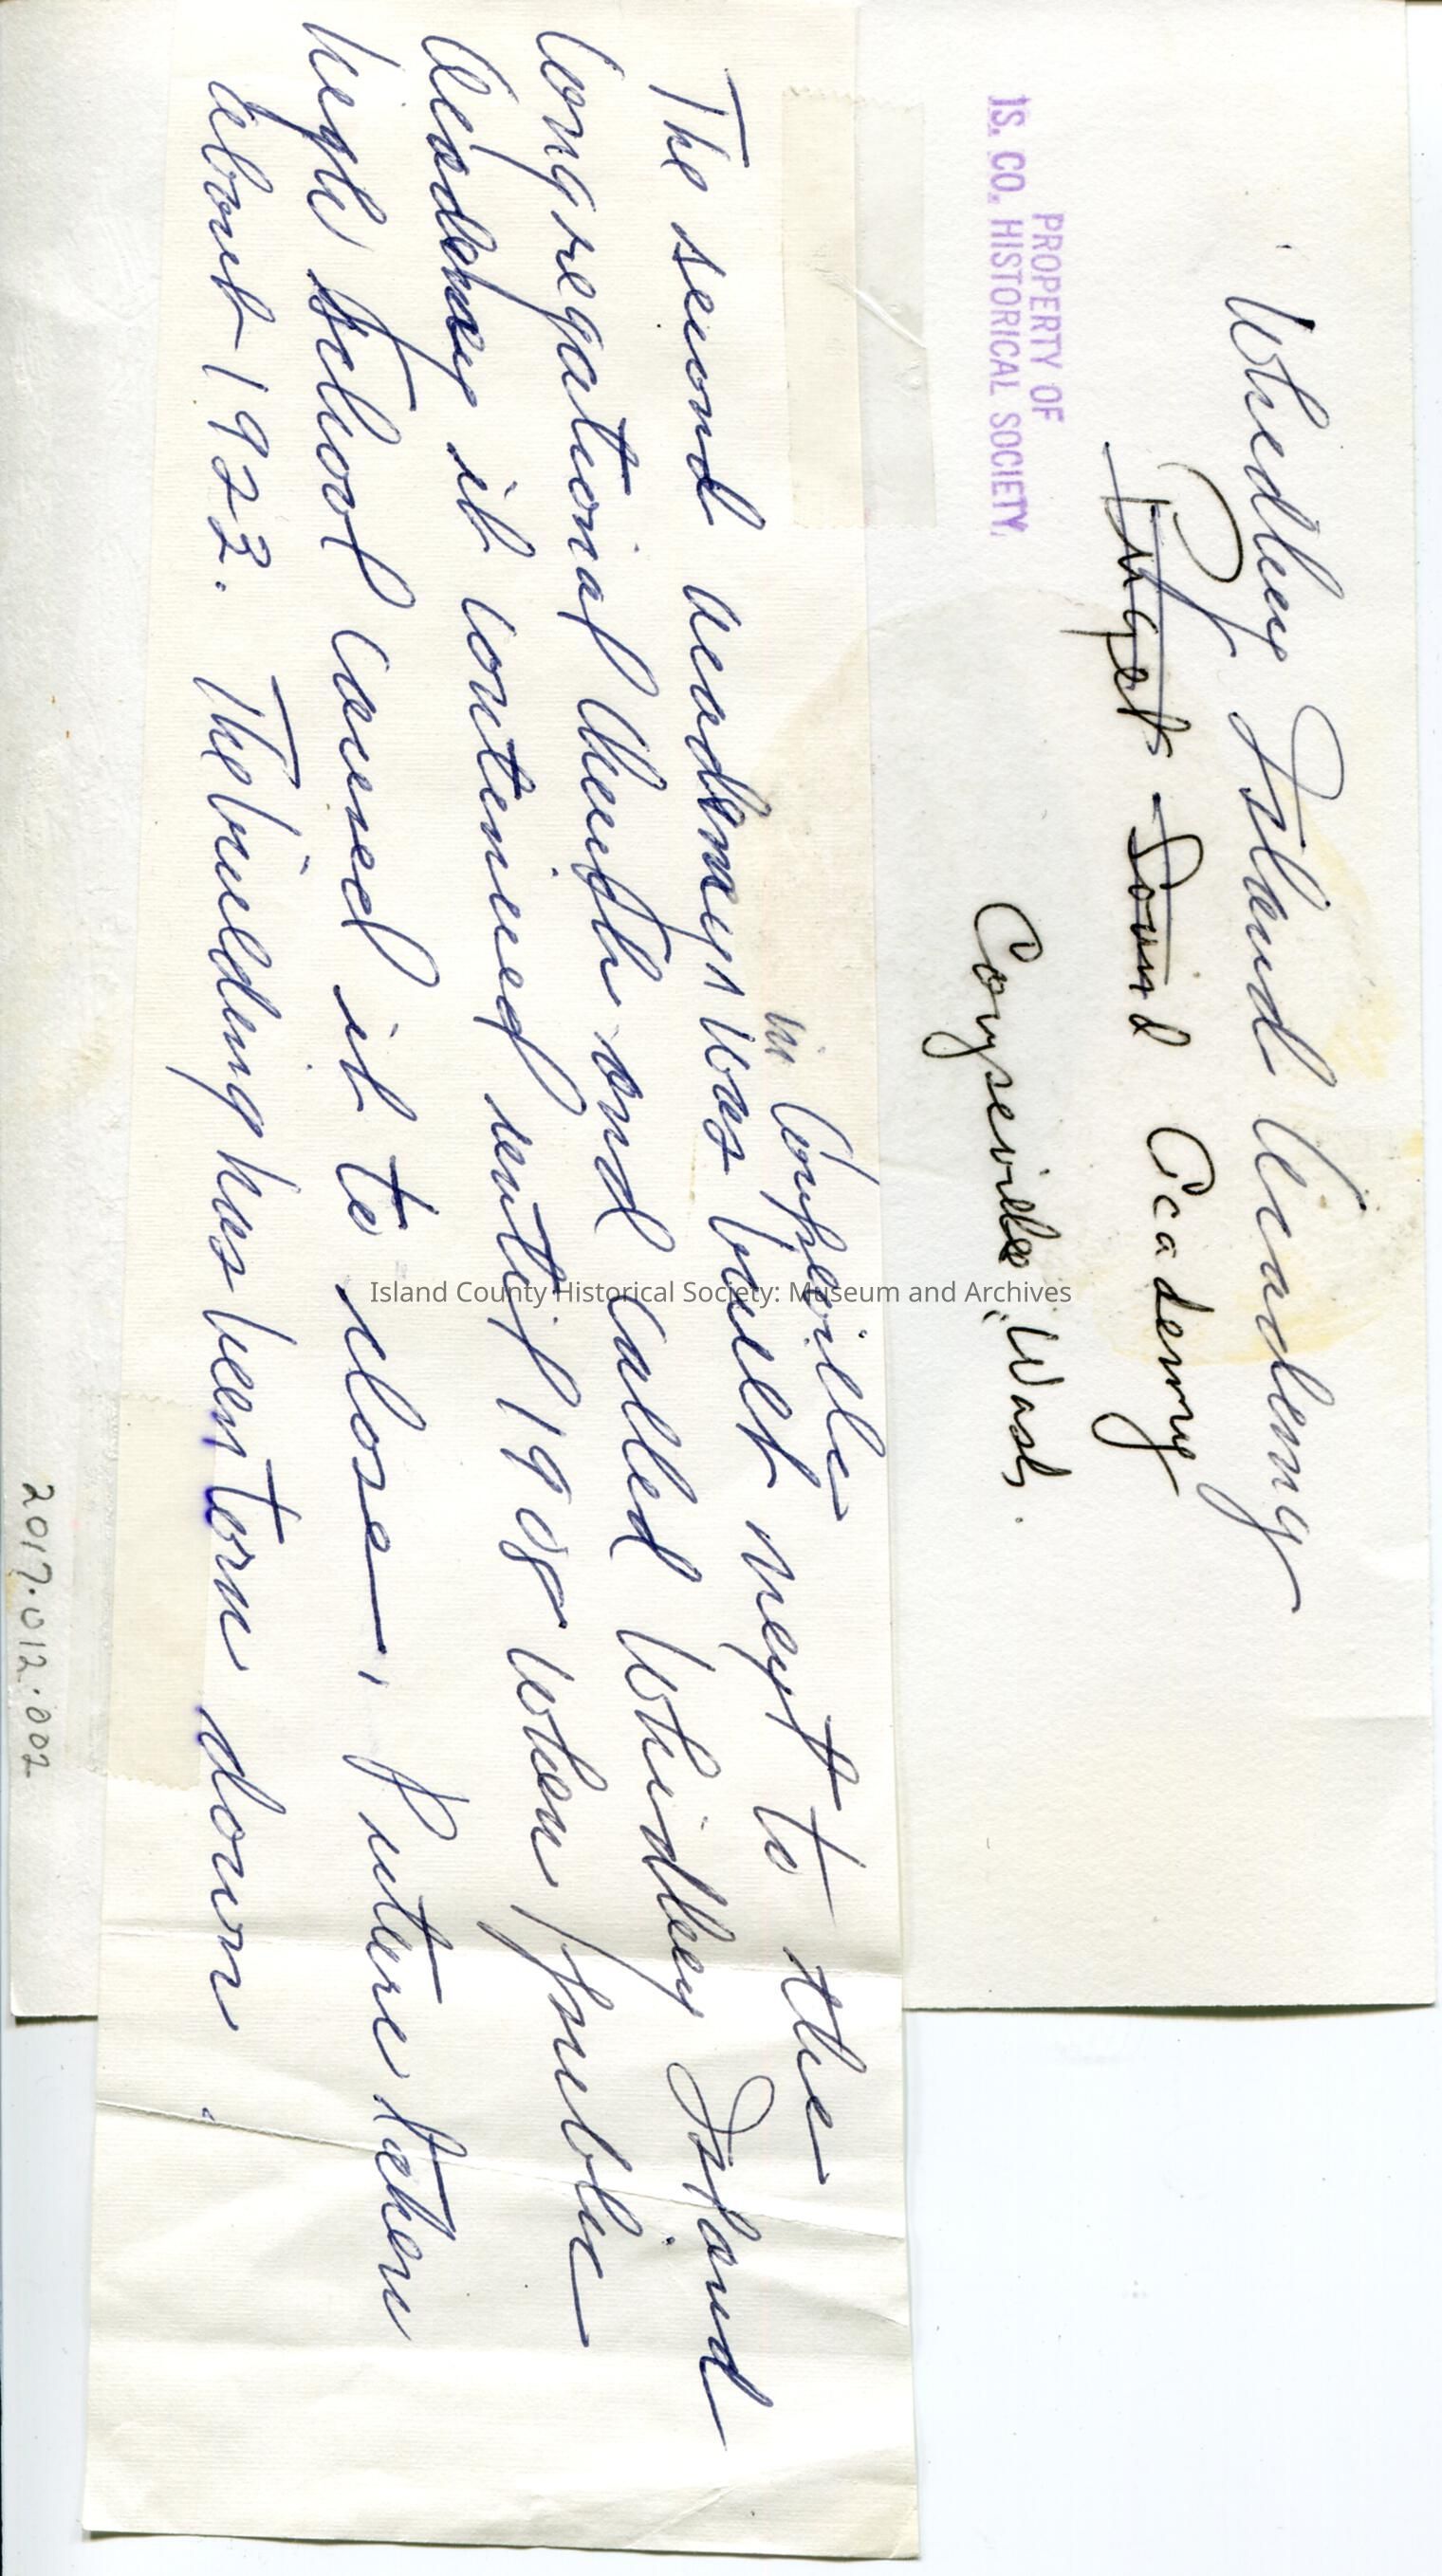 Whidbey Island Academy
Puget Sound Academy
PROPERTY OF
IS. CO. HISTORICAL SOCIETY.
Coupeville, Wash.
in Coupeville
The second academy was built next to the
Congregational Church and called Whidbey Island
Academy it continued until 1908 when public
high school caused it to close. Picture taken
about 1922. The building has been torn down.
2017.012.002
Island County Historical Society: Museum and Archives